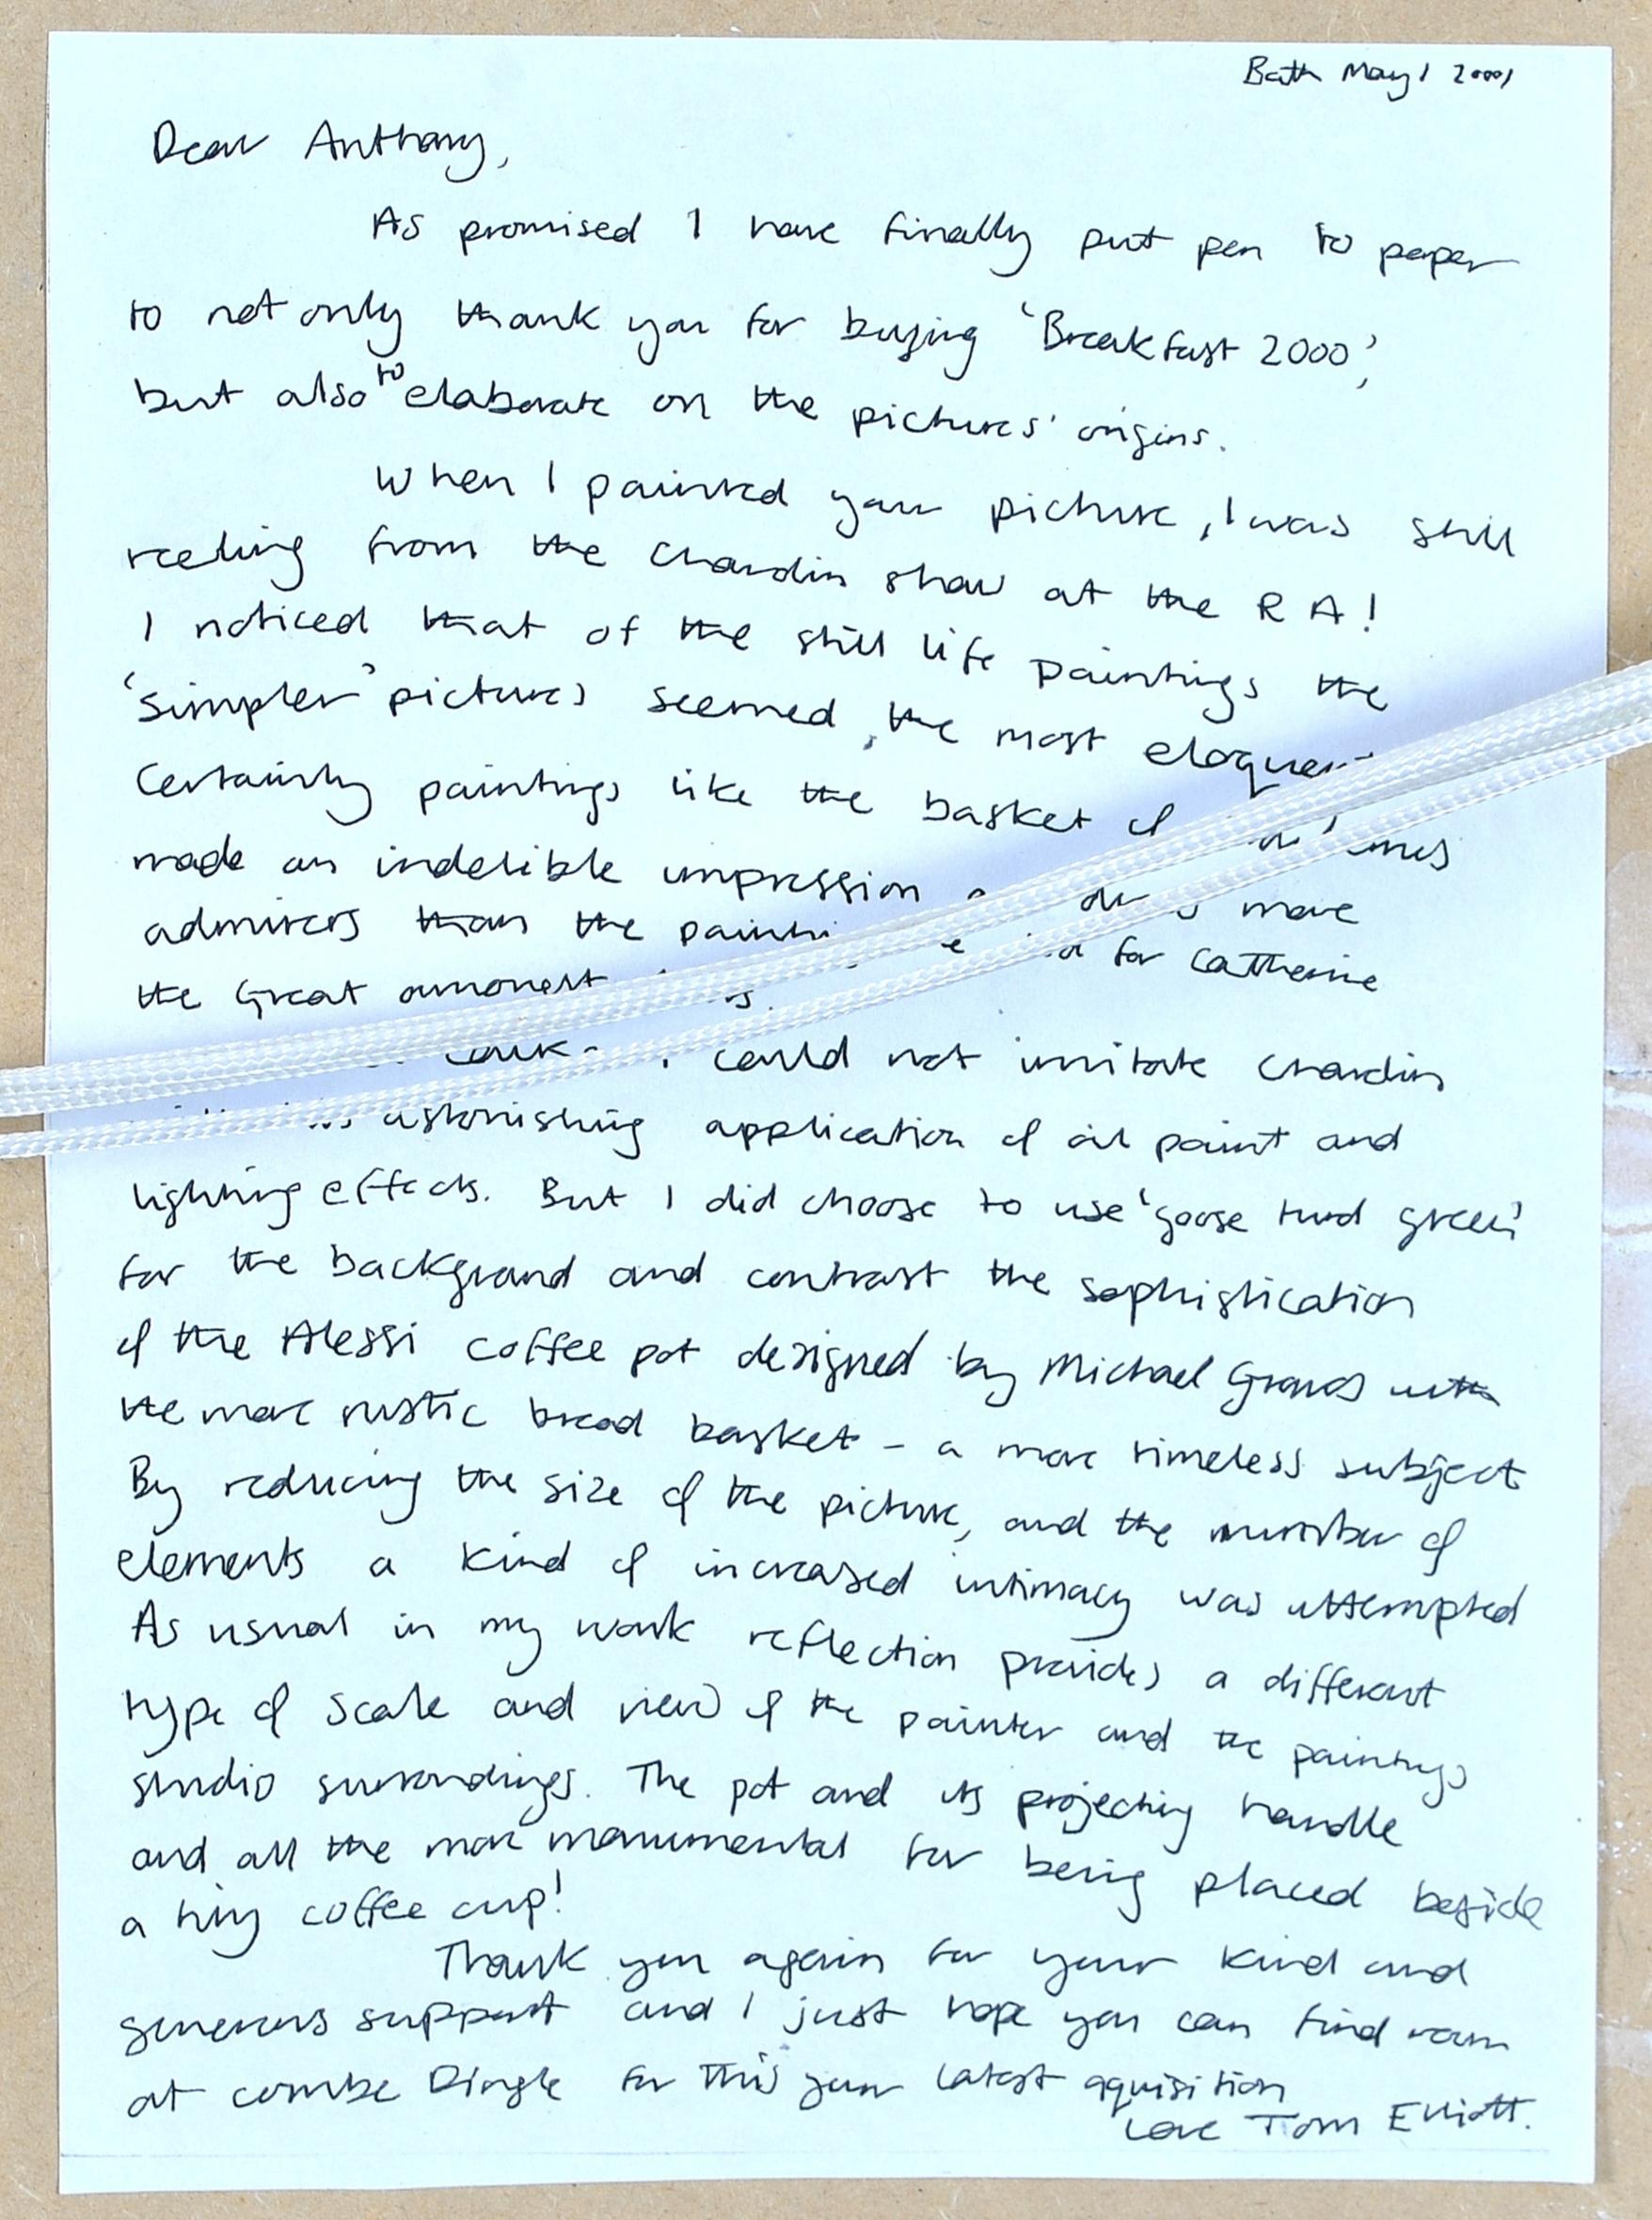 Bath May 1 2001
Dear Anthony,
As promised I have finally put pen to paper
to not only thank you for buying 'Breakfast 2000',
but also to elaborate on the pictures' origins.
When I painted your picture, I was still
reeling from the Chardin show at the RA!
I noticed that of the still life paintings the
'simpler' pictures seemed, the most
Certainly paintings like the basket of
made an indelible impression
admirers than the more
the Great amongst for Catherine
could not imitate Chardin
astonishing application of oil paint and
lighting effects. But I did choose to use 'goose turd green'
for the background and contrast the sophistication
of the Alessi coffee pot designed by Michael Graves with
the more rustic bread basket - a more timeless subject
By reducing the size of the picture, and the number of
elements a kind of increased intimacy was attempted
As usual in my work reflection provides a different
type of scale and view of the painter and the paintings
studio surroundings. The pot and its projecting handle
and all the more monumental for being placed beside
a tiny coffee cup!
Thank you again for your kind and
generous support and I just hope you can find room
at combe Dingle for this your latest aquisition
Love Tom Elliott.